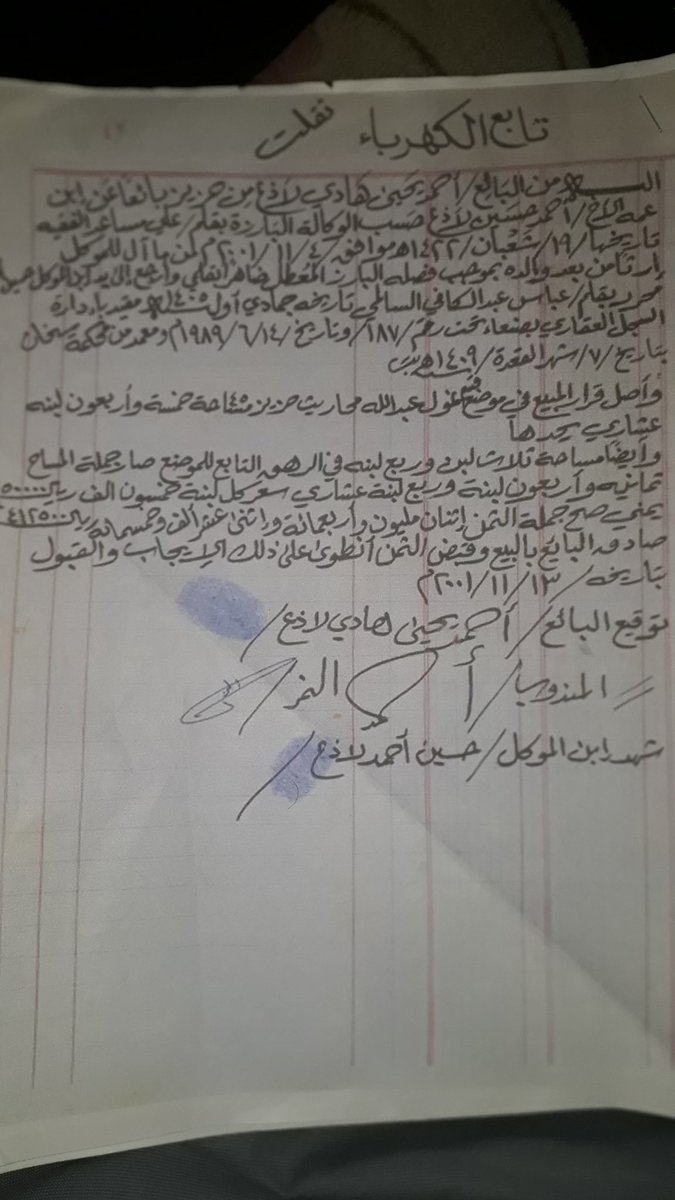 تابع الكهرباء نقلت
من البائع/ أحمد يحيى هادي لاذع من حزيز بائعاً عن ابن
عمه الأخ/ أحمد حسين لاذع حسب الوكالة البارزة بقلم/ علي مساعد الفقيه
تاريخها/ ١٩/ شعبان/ ١٤٢٢هـ موافق/ ٤/ ١١/ ٢٠٠١م من ما آل للموكل
إرثاً من بعد والده بموجب فصله البارز المعطل ظاهر القلمي وارجع إلى يد ابن الموكل
محرر بقلم/ عباس عبدالكافي السالمي تاريخه جمادي أول ١٤٠٥هـ مقيد بإدارة
السجل العقاري بصنعاء تحت رقم/ ١٨٧/ وتاريخ/ ١٤/ ٦/ ١٩٨٩م ومعمد من محكمة سنحان
بتاريخ/ ٧/ شهر القعدة/ ١٤٠٩هـ
وأصل قرار المبيع في موضع غول عبدالله محاريث حزيز مساحة ٤٥ خمسة وأربعون لبنه
عشاري يحدها
وأيضاً مساحة ثلاث لبن وربع لبنه في الرهق التابع للموضع صار جملة المساح
ثمانيه وأربعون لبنة وربع لبنة عشاري سعر كل لبنة خمسون الف ريال ٥٠٠٠٠
يمني صح جملة الثمن إثنان مليون وأربعمائة واثنى عشر ألف وخمسمائة ريال ٢٤١٢٥٠٠
صادق البائع بالبيع وقبض الثمن أنطوى على ذلك الإيجاب والقبول
بتاريخه/ ١٣/ ١١/ ٢٠٠١م
توقيع البائع/ أحمد يحيى هادي لاذع/
المندوب/ النمر/
شهد ابن الموكل/ حسين أحمد لاذع/